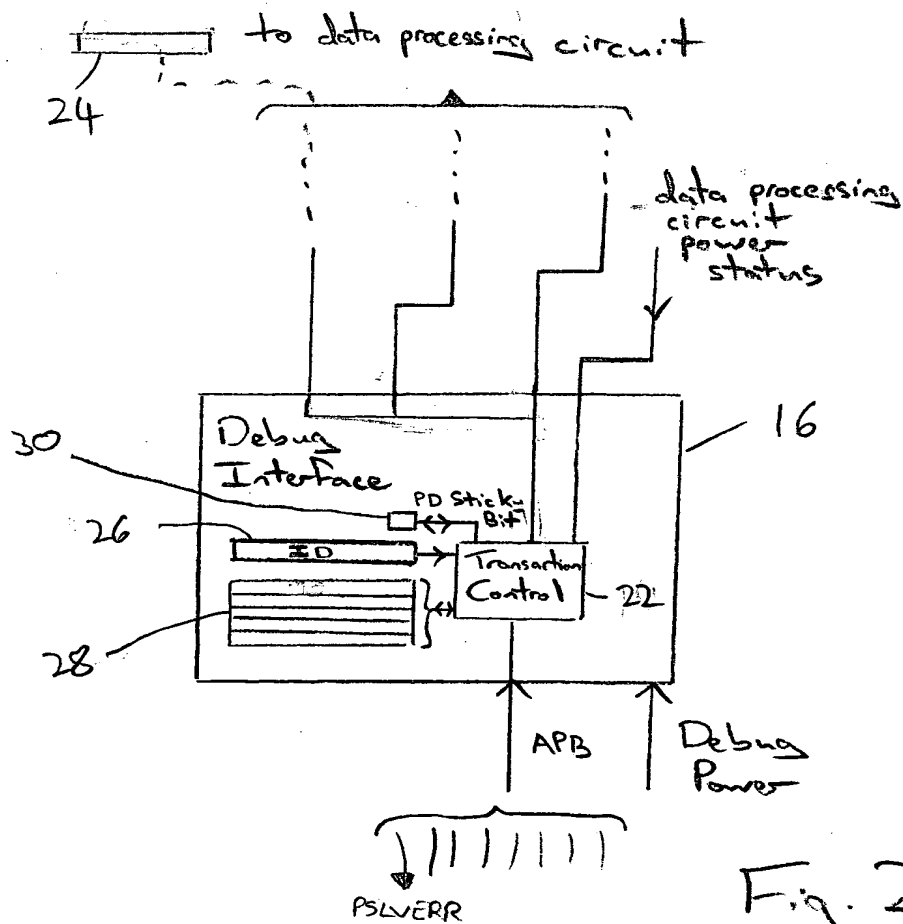 to data processing circuit
24
data processing
circuit
power
status
16
Debug
Interface
30
PD Sticky
Bit
26
ID
Transaction
Control
22
28
APB
Debug
Power
PSLVERR
Fig. 2